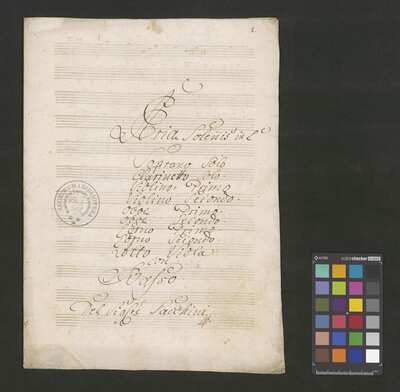 1.
Aria Solenis in C
Soprano Solo
Clarinetto Solo.
Violino. Primo
Violino Secondo.
Oboe Primo.
Oboe Secondo.
Corno Primo
Corno Secondo
Viola
con
Basso
Del Sig. Sacchini